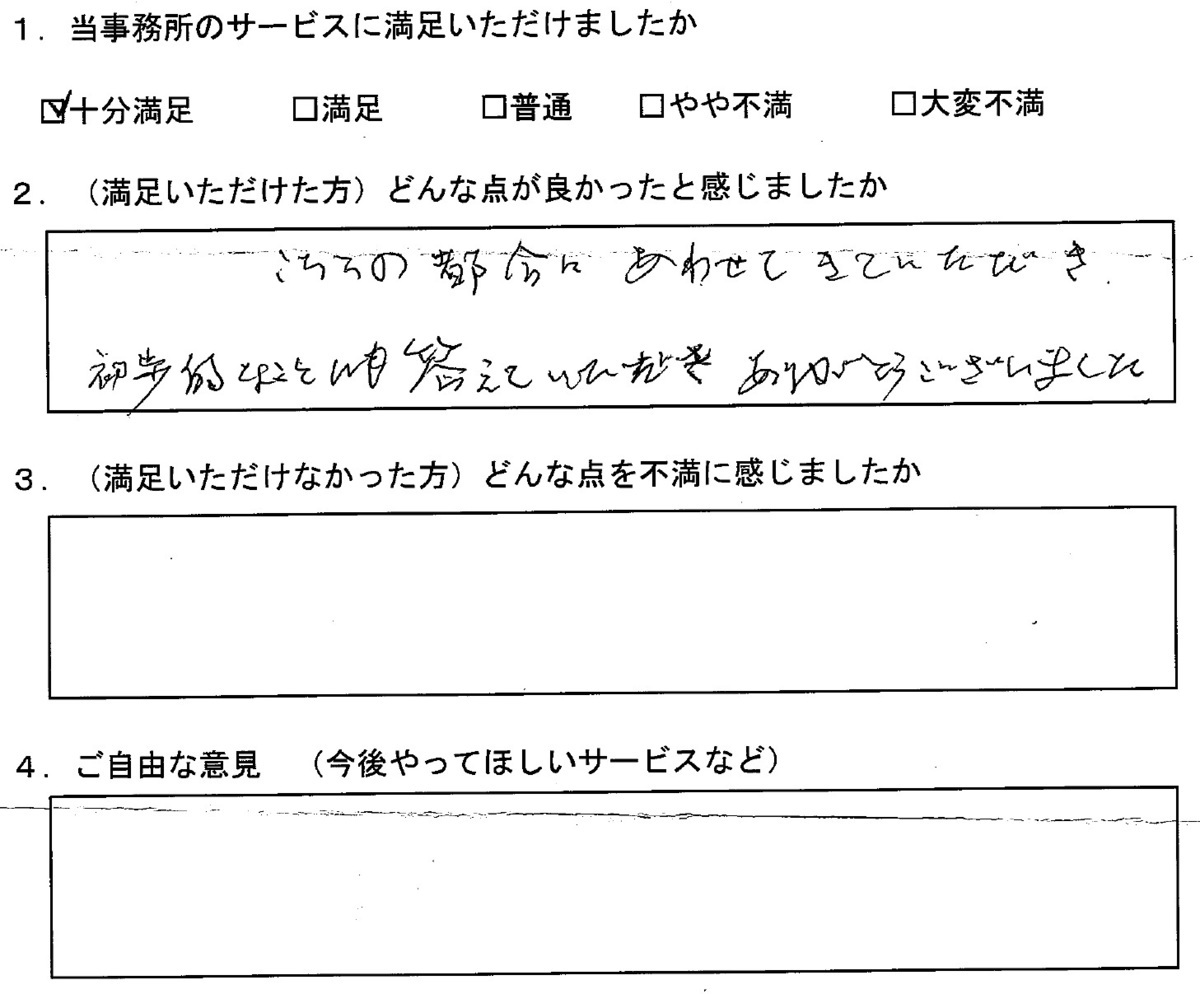 1. 当事務所のサービスに満足いただけましたか
☑十分満足 □満足 □普通 □やや不満 □大変不満
2. （満足いただけた方）どんな点が良かったと感じましたか
こちらの都合に あわせて きていただき、
初歩的なことにも答えていただき ありがとうございました
3. （満足いただけなかった方）どんな点を不満に感じましたか
4. ご自由な意見 （今後やってほしいサービスなど）